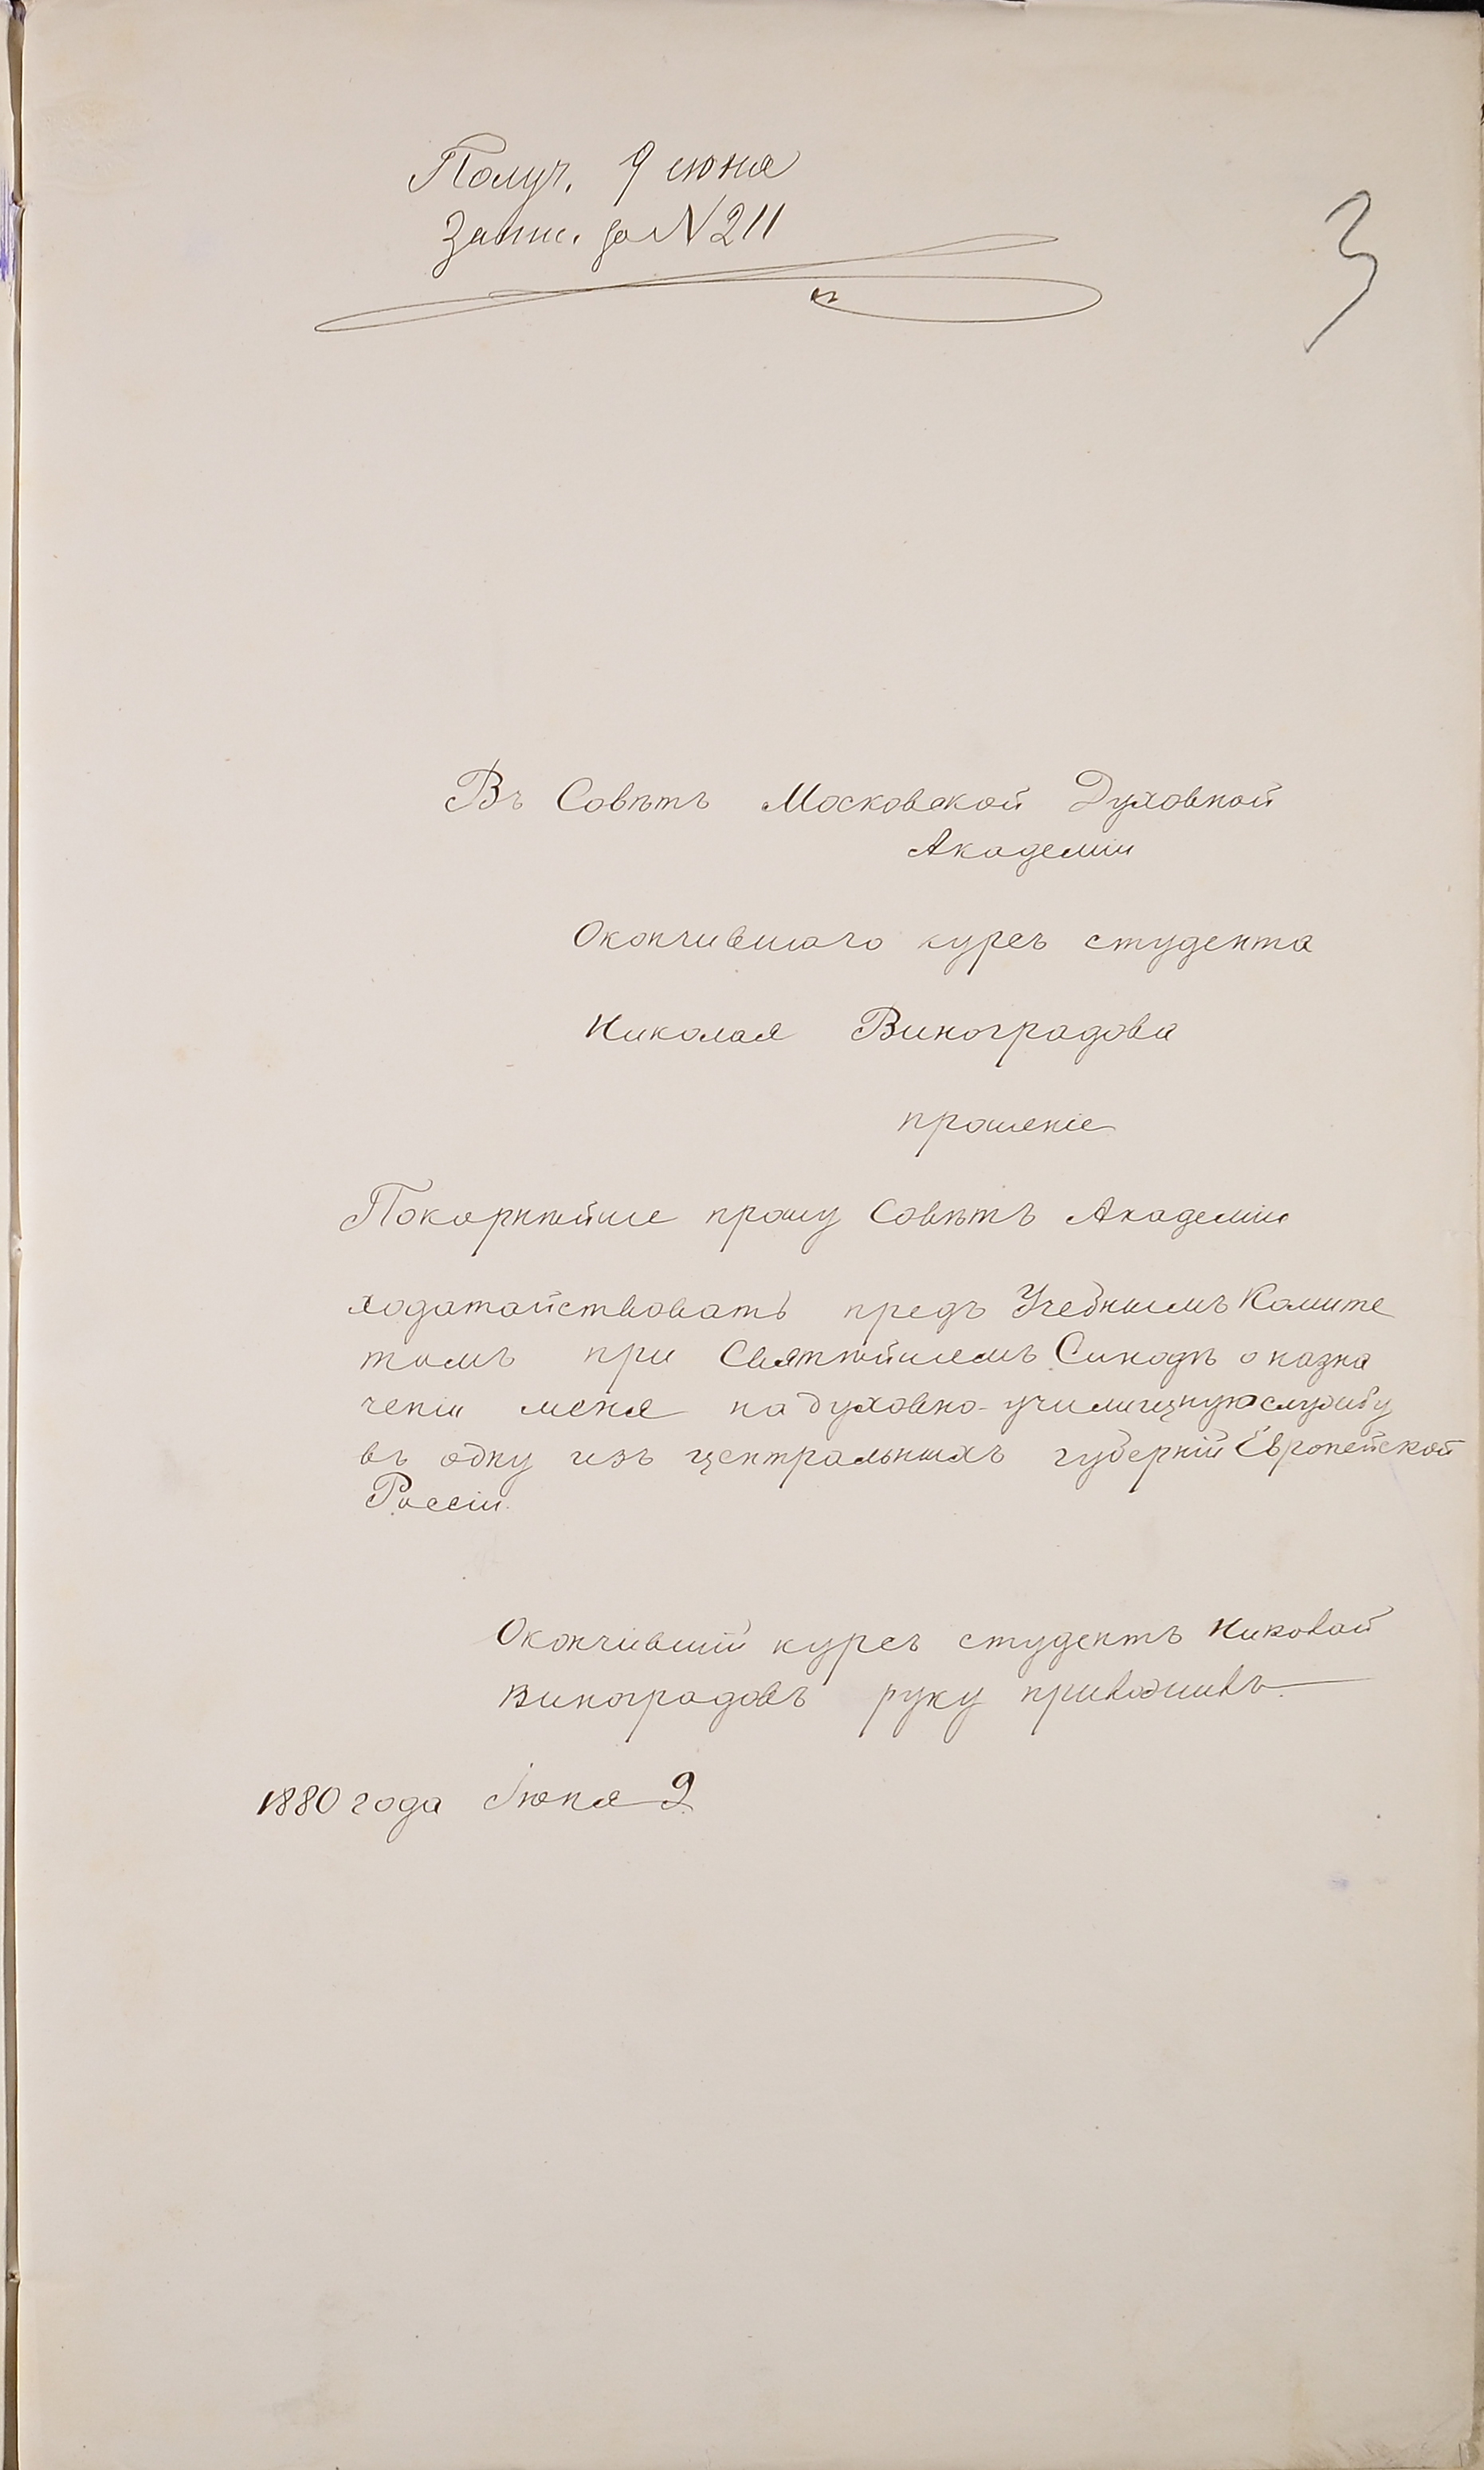 Получ. 9 июня
Запис. за N 211
3
Въ Совѣтъ Московской Духовной
Академіи
Окончившаго курсъ студента
Николая Виноградова
прошеніе
Покорнѣйше прошу Совѣтъ Академіи
ходатайствовать предъ Учебнымъ Комите
томъ при Святѣйшемъ Синодѣ о назна
ченіи меня на духовно-училищную службу
въ одну изъ центральныхъ губерній Европейской
Россіи.
Окончившій курсъ студентъ Николай
Виноградовъ руку приложилъ.
1880 года Іюня 9